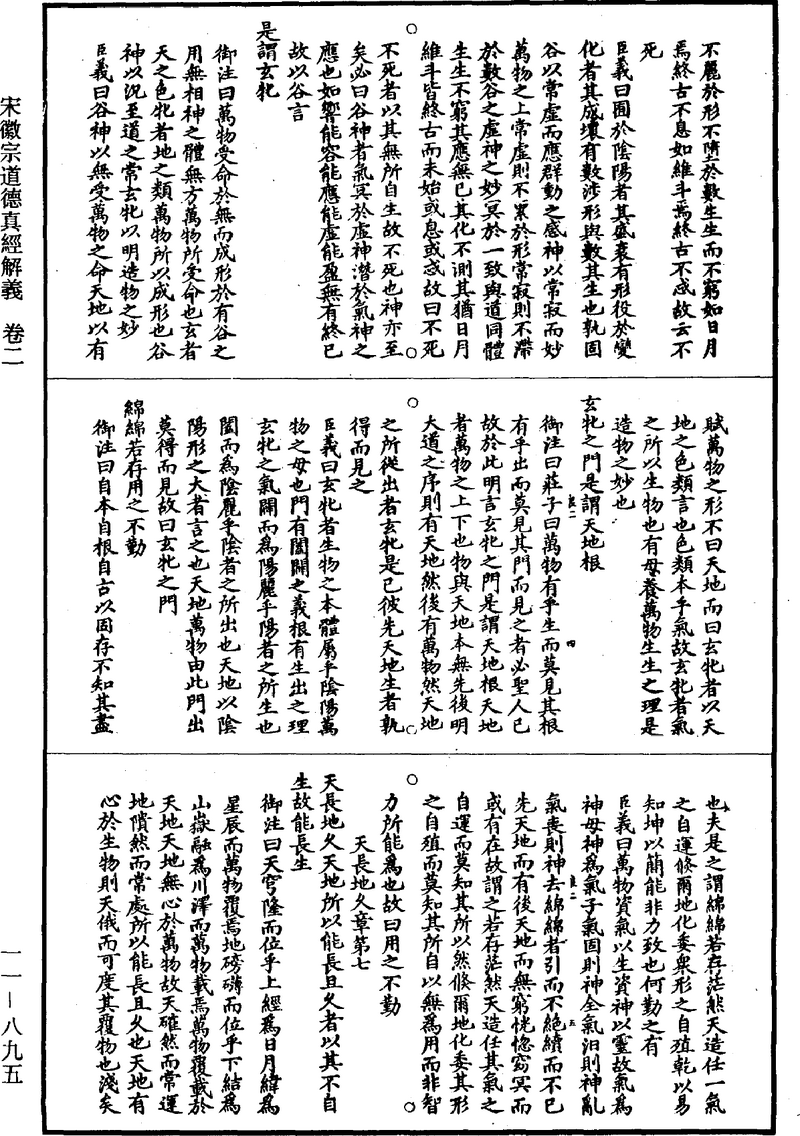 宋徽宗道德真經解義　卷二
一一—八九五
不麗於形不墮於數生生而不窮如日月
焉終古不息如維斗焉終古不忒故云不
死
臣義曰囿於陰陽者其盛衰有形役於變
化者其成壞有數涉形與數其生也孰固
谷以常虛而應群動之感神以常寂而妙
萬物之上常虛則不累於形常寂則不滯
於數谷之虛神之妙冥於一致與道同體
生生不窮其應無已其化不測其猶日月
維斗皆終古而未始或息或忒故曰不死
不死者以其無所自生故不死也神亦至
矣必曰谷神者氣冥於虛神潛於氣神之
應也如響能容能應能虛能盈無有終已
故以谷言
是謂玄牝
御注曰萬物受命於無而成形於有谷之
用無相神之體無方萬物所受命也玄者
天之色牝者地之類萬物所以成形也谷
神以況至道之常玄牝以明造物之妙
臣義曰谷神以無受萬物之命天地以有
賦萬物之形不曰天地而曰玄牝者以天
地之色類言也色類本乎氣故玄牝者氣
之所以生物也有母養萬物生生之理是
造物之妙也
玄牝之門是謂天地根
御注曰莊子曰萬物有乎生而莫見其根
有乎出而莫見其門而見之者必聖人已
故於此明言玄牝之門是謂天地根天地
者萬物之上下也物與天地本無先後明
大道之序則有天地然後有萬物然天地
之所從出者玄牝是已彼先天地生者孰
得而見之
臣義曰玄牝者生物之本體屬乎陰陽萬
物之母也門有闔闢之義根有生出之理
玄牝之氣闢而為陽麗乎陽者之所生也
闔而為陰麗乎陰者之所出也天地以陰
陽形之大者言之也天地萬物由此門出
莫得而見故曰玄牝之門
綿綿若存用之不勤
御注曰自本自根自古以固存不知其盡
也夫是之謂綿綿若存茫然天造任一氣
之自運倏爾地化委眾形之自殖乾以易
知坤以簡能非力致也何勤之有
臣義曰萬物資氣以生資神以靈故氣為
神母神為氣子氣固則神全氣汩則神亂
氣喪則神去綿綿者引而不絕續而不已
先天地而有後天地而無窮恍惚窈冥而
或有在故謂之若存茫然天造任其氣之
自運而莫知其所以然倏爾地化委其形
之自殖而莫知其所自以無為用而非智
力所能為也故曰用之不勤
天長地久章第七
天長地久天地所以能長且久者以其不自
生故能長生
御注曰天穹隆而位乎上經為日月緯為
星辰而萬物覆焉地磅礴而位乎下結為
山嶽融為川澤而萬物載焉萬物覆載於
天地天地無心於萬物故天確然而常運
地隤然而常處所以能長且久也天地有
心於生物則天俄而可度其覆物也淺矣